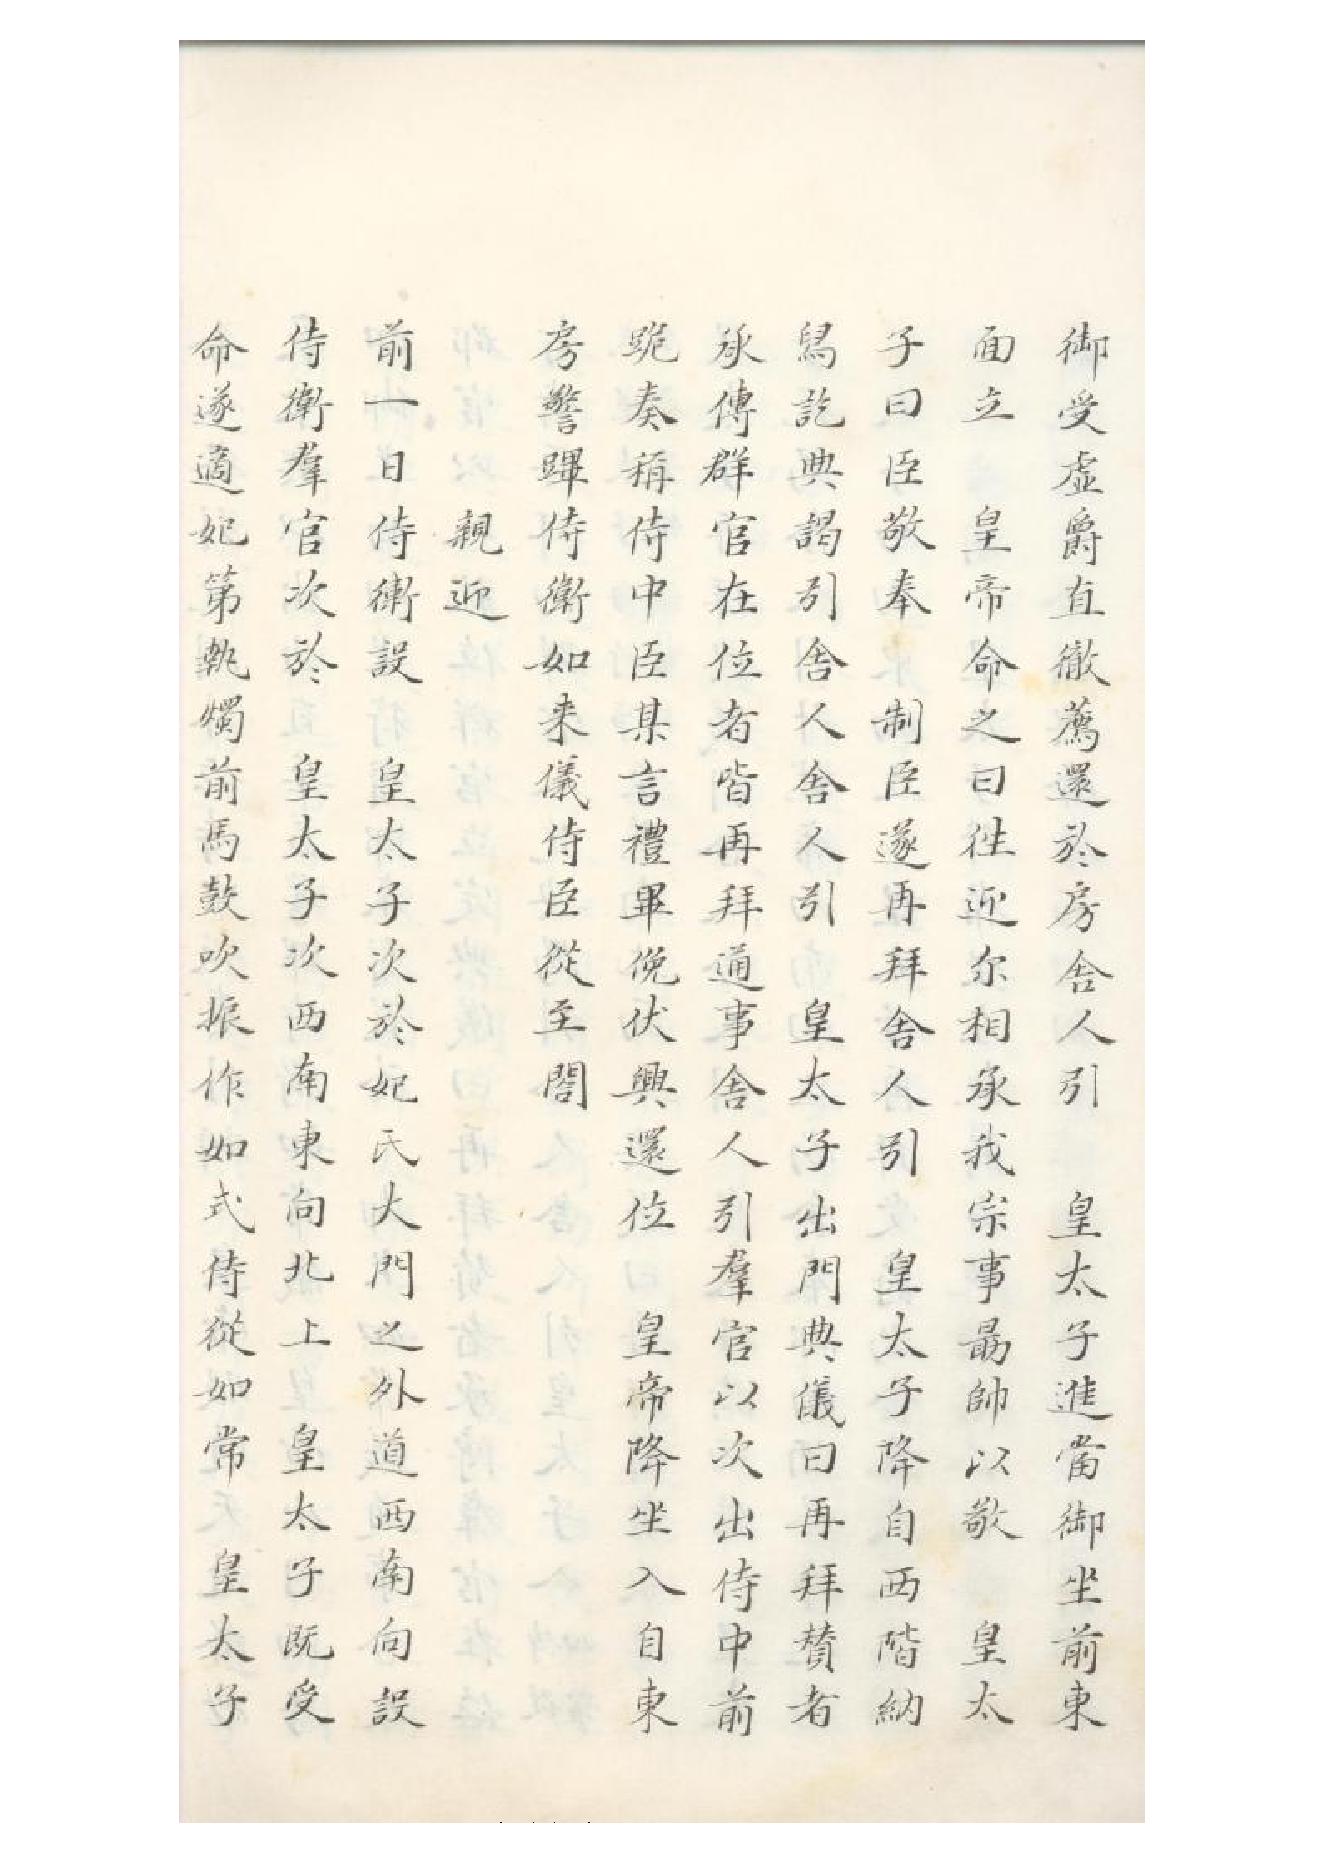 御受虛爵直徹薦還於房舎人引　皇太子進當御坐前東
面立　皇帝命之曰徃迎尔相承我宗事勗帥以敬　皇太
子曰臣敬奉　制臣遂再拜舎人引　皇太子降自西階納
舄訖典謁引舎人舎人引　皇太子出門典儀曰再拜賛者
承傳群官在位者皆再拜通事舎人引羣官以次出侍中前
跪奏稱侍中臣某言禮畢俛伏興還位　皇帝降坐入自東
房警蹕侍衛如来儀侍臣從至閤
親迎
前一日侍衛設　皇太子次於妃氏大門之外道西南向設
侍衛羣官次於　皇太子次西南東向北上　皇太子既受
命遂適妃第執燭前馬鼓吹振作如式侍從如常　皇太子